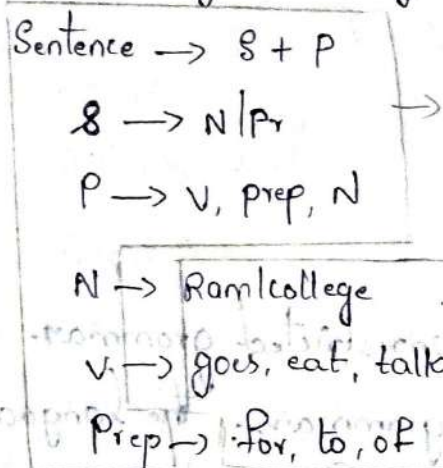 Sentence → S + P
S → N|Pr →
P → V, prep, N
N → Ram|college
V → goes, eat, talk
Prep → for, to, of